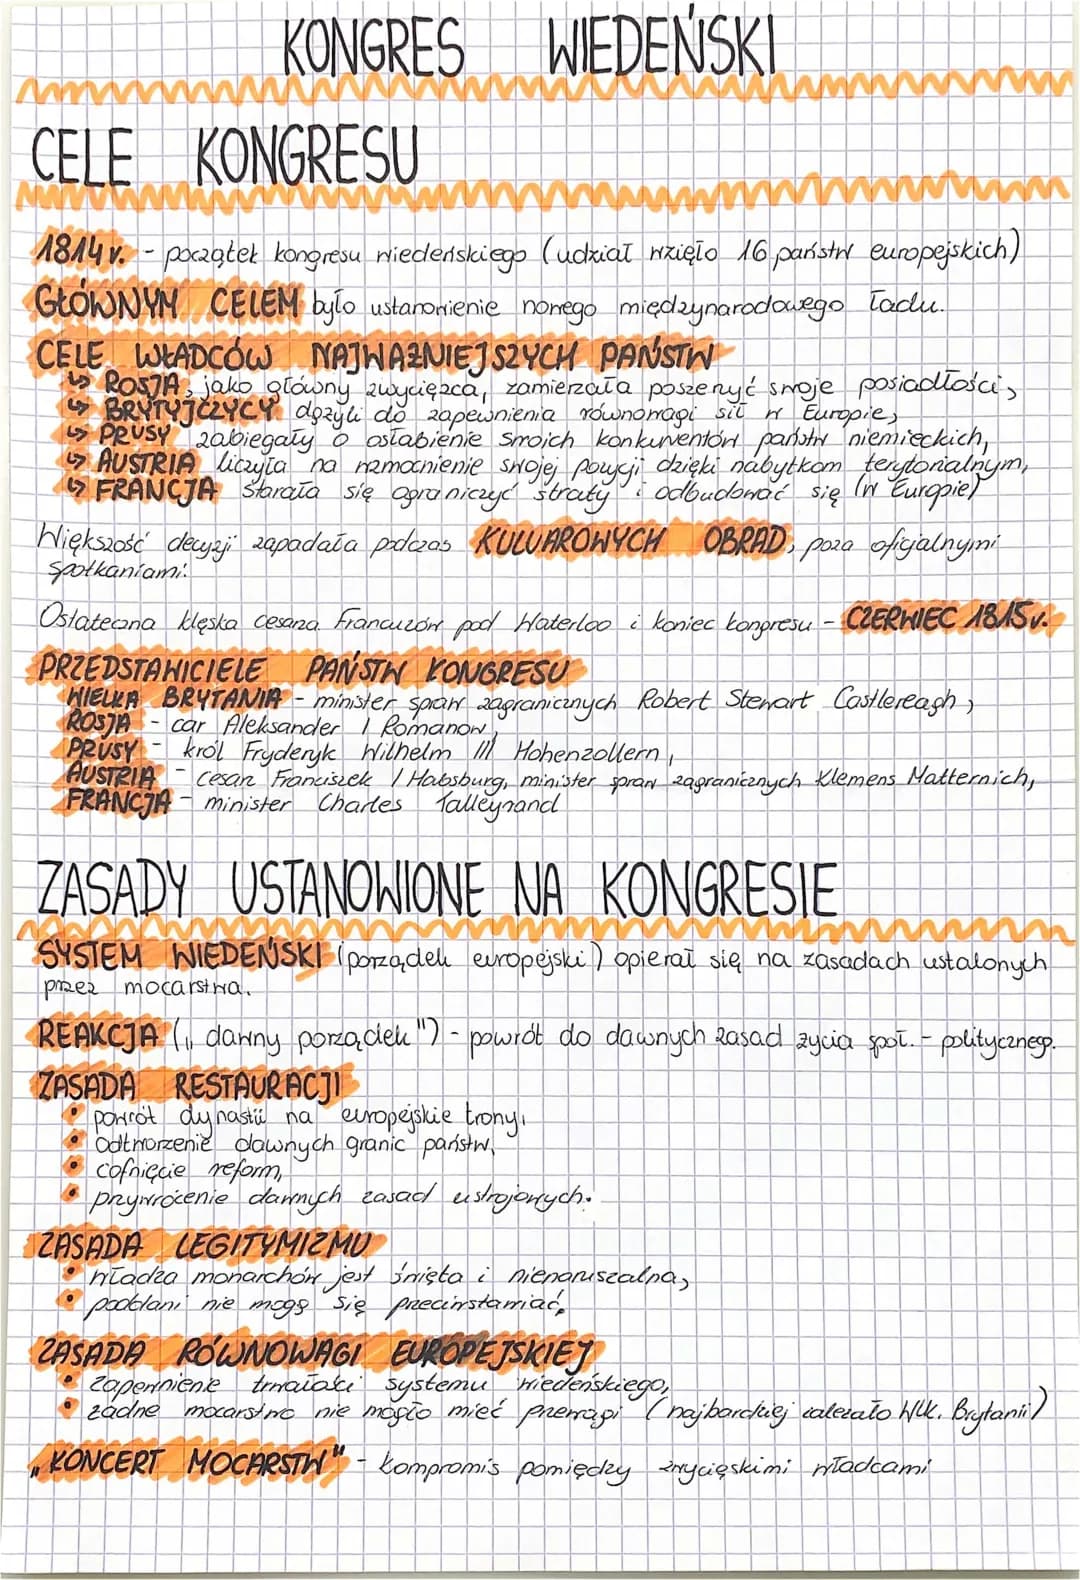 KONGRES WIEDEŃSKI
CELE KONGRESU
1814 r. - początek kongresu wiedeńskiego (udział wzięło 16 państw europejskich)
GŁÓWNYM CELEM było ustanowienie nowego międzynarodowego ładu.
CELE WŁADCÓW NAJWAŻNIEJSZYCH PAŃSTW
↳ ROSJA, jako główny zwycięzca, zamierzała poszerzyć swoje posiadłości,
↳ BRYTYJCZYCY dążyli do zapewnienia równowagi sił w Europie,
↳ PRUSY zabiegały o osłabienie swoich konkurentów państw niemieckich,
↳ AUSTRIA liczyła na wzmocnienie swojej pozycji dzięki nabytkom terytorialnym,
↳ FRANCJA starała się ograniczyć straty i odbudować się (w Europie)
Większość decyzji zapadała podczas KULUAROWYCH OBRAD, poza oficjalnymi
spotkaniami.
Ostateczna klęska cesarza Francuzów pod Waterloo i koniec kongresu - CZERWIEC 1815 r.
PRZEDSTAWICIELE PAŃSTW KONGRESU
WIELKA BRYTANIA - minister spraw zagranicznych Robert Stewart Castlereagh,
ROSJA - car Aleksander I Romanow,
PRUSY - król Fryderyk Wilhelm III Hohenzollern,
AUSTRIA - cesarz Franciszek I Habsburg, minister spraw zagranicznych Klemens Matternich,
FRANCJA - minister Charles Talleyrand
ZASADY USTANOWIONE NA KONGRESIE
SYSTEM WIEDEŃSKI (porządek europejski) opierał się na zasadach ustalonych
przez mocarstwa.
REAKCJA („dawny porządek") - powrót do dawnych zasad życia społ. - politycznego.
ZASADA RESTAURACJI
• powrót dynastii na europejskie trony,
• odtworzenie dawnych granic państw,
• cofnięcie reform,
• przywrócenie dawnych zasad ustrojowych.
ZASADA LEGITYMIZMU
• władza monarchów jest święta i nienaruszalna,
• poddani nie mogą się przeciwstawiać,
ZASADA RÓWNOWAGI EUROPEJSKIEJ
• zapewnienie trwałości systemu wiedeńskiego,
• żadne mocarstwo nie mogło mieć przewagi (najbardziej zależało Wlk. Brytanii)
„KONCERT MOCARSTW" - kompromis pomiędzy zwycięskimi władcami